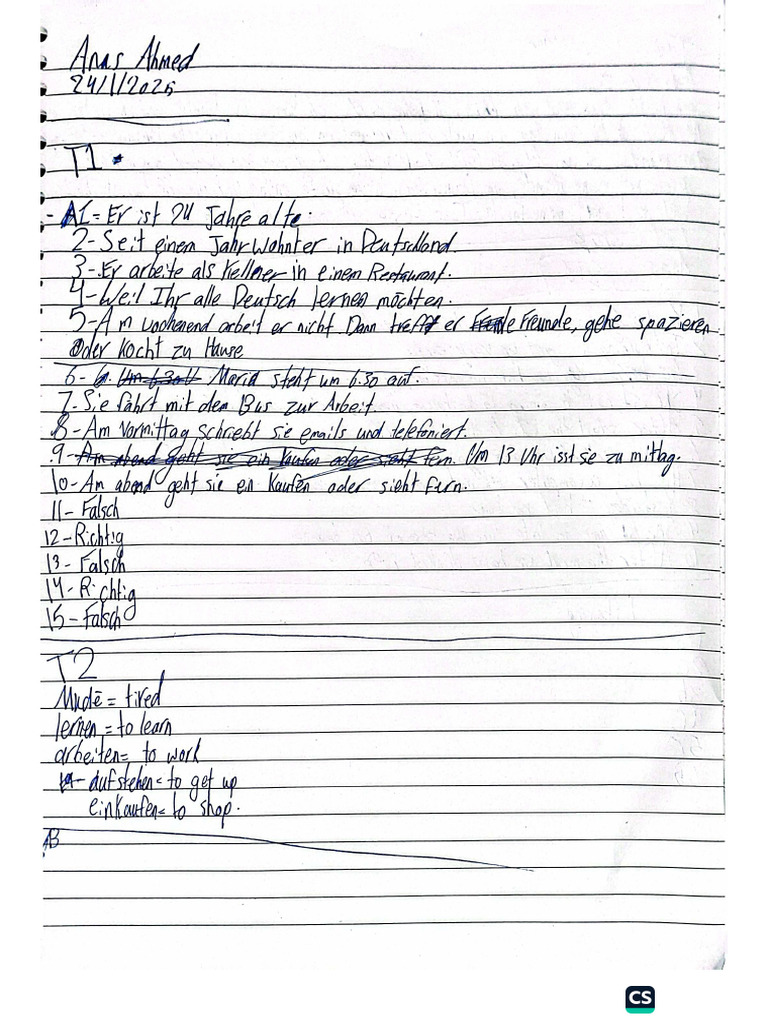 Anas Ahmed
24/1/2026
T1
- A1= Er ist 24 Jahre alte.
2- Seit einem Jahr wohnter in Deutschland.
3- Er arbeite als Kellner in einem Restaurant.
4- Weil Ihr alle Deutsch lernen möchten.
5- Am wochenend arbeit er nicht Dann trefft er Freunde, gehe spazieren
Oder Kocht zu Hause
6- Maria steht um 6.30 auf.
7- Sie fährt mit dem Bus zur Arbeit
8- Am Vormittag schriebt sie emails und telefoniert.
9- Um 13 Uhr isst sie zu mittag.
10- Am abend geht sie ein Kaufen oder sieht fern.
11- Falsch
12- Richtig
13- Falsch
14- Richtig
15- Falsch
T2
Mude = tired
lernen = to learn
arbeiten= to work
aufstehen= to get up
einkaufen= to shop.
B
CS